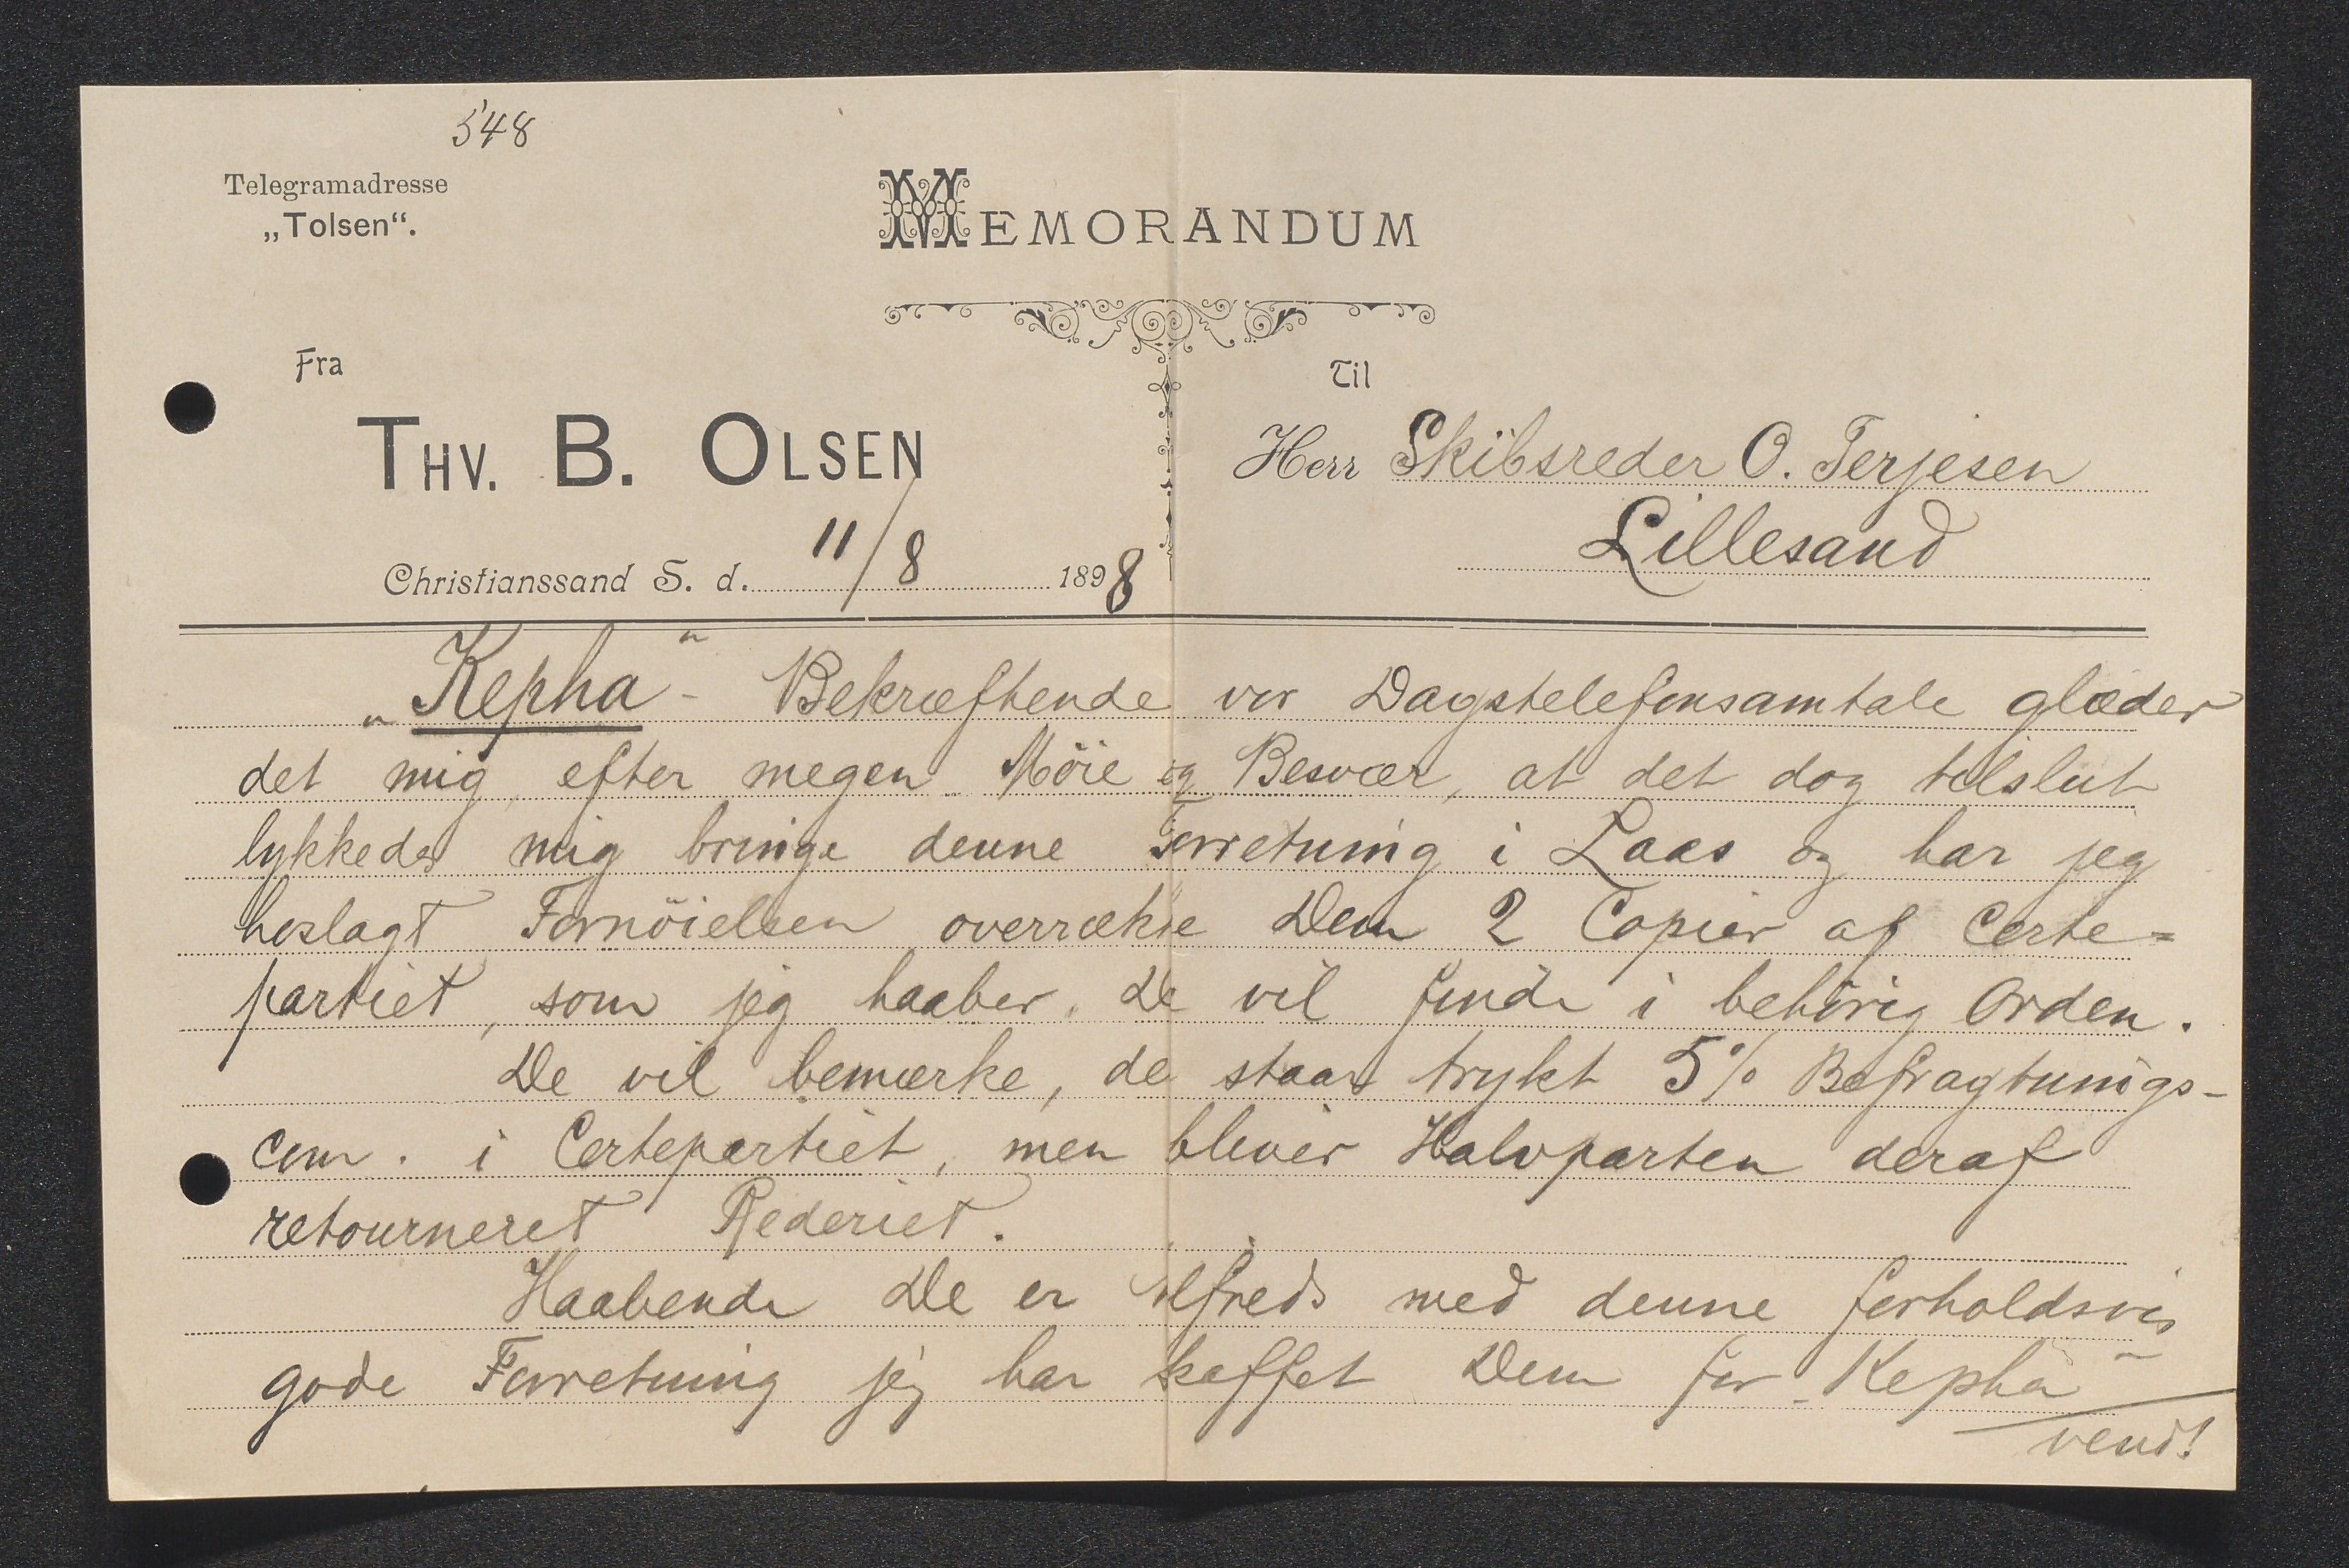 548
Telegramadresse
„Tolsen“.
MEMORANDUM
Fra
THV. B. OLSEN
Christianssand S. d. 11/8 1898
Til
Herr Skibsreder O. Terjesen
Lillesand
„Kepha“ - Bekræftende vor Dagstelefonsamtale glæder
det mig, efter megen Möie og Besvær, at det dog tilslut
lykkedes mig bringe denne Forretning i Laas og har jeg
hoslagt Fornöielsen overrække Dem 2 Copier af Certe=
partiet, som jeg haaber De vil finde i behörig Orden.
De vil bemærke, de staar trykt 5% Befragtnings-
com. i Certepartiet, men bliver Halvparten deraf
retourneret Rederiet.
Haabende De er tilfreds med denne forholdsvis
gode Forretning jeg har skaffet Dem for „Kepha“
vend!